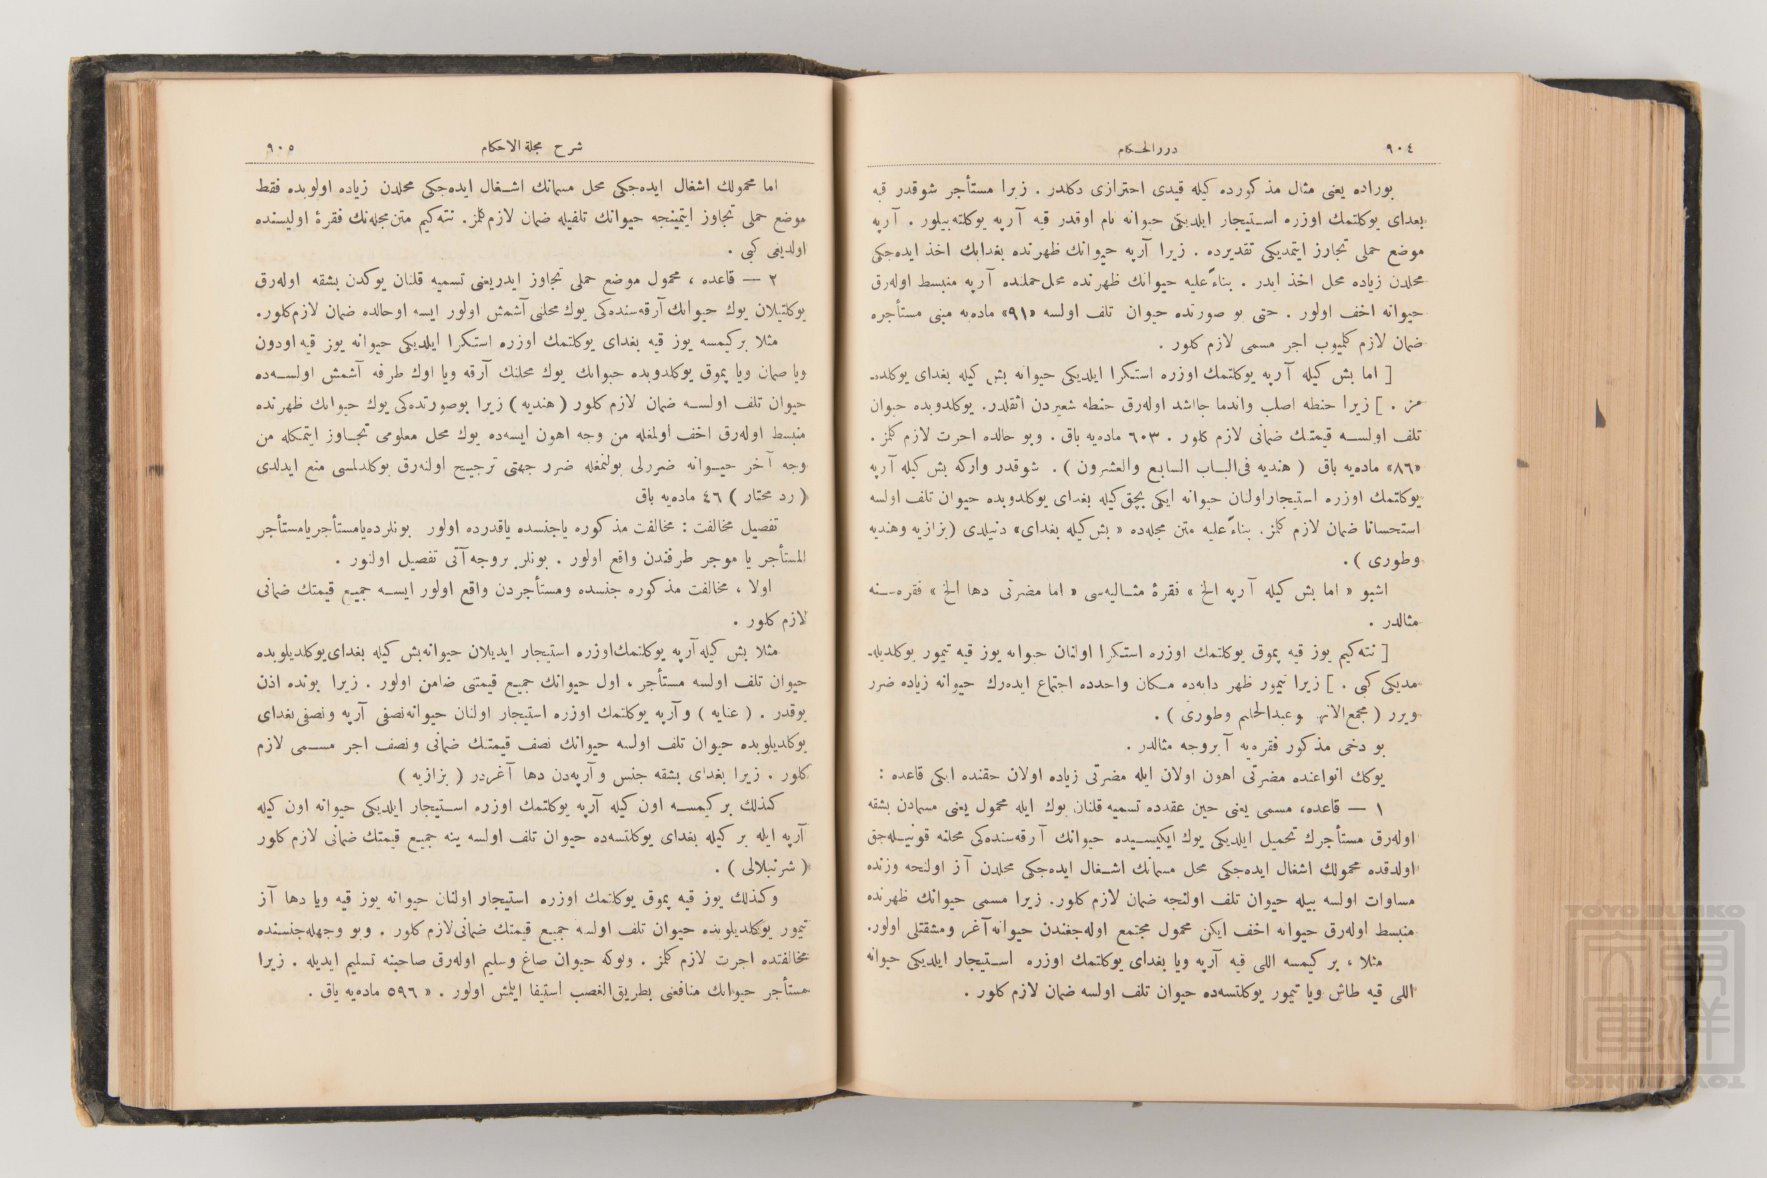 ٩٠٤
دررالحكام
بوراده یعنی مثال مذكورده كیله قیدی احترازی دكلدر . زیرا مستأجر شوقدر قیه
بغدای یوكلتمك اوزره استیجار ایلدیكی حیوانه تام اوقدر قیه آرپه یوكلته‌بیلور . آرپه
موضع حملی تجاوز ایتمدیكی تقدیرده . زیرا آرپه حیوانك ظهرنده بغدایك اخذ ایده‌جكی
محلدن زیاده محل اخذ ایدر . بناءً علیه حیوانك ظهرنده محل‌حملنده آرپه منبسط اوله‌رق
حیوانه اخف اولور . حتی بو صورتده حیوان تلف اولسه «٩١» ماده‌یه مبنی مستأجره
ضمان لازم كلمیوب اجر مسمی لازم كلور .
[ اما بش كیله آرپه یوكلتمك اوزره استكرا ایلدیكی حیوانه بش كیله بغدای یوكلده‌ـ
مز . ] زیرا حنطه اصلب واندما جااشد اوله‌رق حنطه شعیردن اثقلدر. یوكلدوبده حیوان
تلف اولسه قیمتنك ضمانی لازم كلور . ٦٠٣ ماده‌یه باق . وبو حالده اجرت لازم كلمز .
«٨٦» ماده‌یه باق ( هندیه فی‌الباب السابع والعشرون ) . شوقدر واركه بش كیله آرپه
یوكلتمك اوزره استیجاراولنان حیوانه ایكی بچق‌كیله بغدای یوكلدوبده حیوان تلف اولسه
استحسانا ضمان لازم كلمز. بناءً علیه متن مجله‌ده « بش‌كیله بغدای» دنیلدی (بزازیه وهندیه
وطوری ) .
اشبو « اما بش كیله آرپه الخ » فقرهٔ مثالیه‌سی « اما مضرتی دها الخ » فقره‌سنه
مثالدر .
[ نته‌كیم یوز قیه پموق یوكلتمك اوزره استكرا اولنان حیوانه یوز قیه تیمور یوكلدیله‌ـ
مدیكی كبی . ] زیرا تیمور ظهر دابه‌ده مكان واحدده اجتماع ایده‌رك حیوانه زیاده ضرر
ویرر ( مجمع‌الانهر وعبدالحلیم وطوری ) .
بو دخی مذكور فقره‌یه آبروجه مثالدر .
یوكك انواعنده مضرتی اهون اولان ایله مضرتی زیاده اولان حقنده ایكی قاعده :
١ — قاعده، مسمی یعنی حین عقدده تسمیه قلنان یوك ایله محمول یعنی مسمادن بشقه
اوله‌رق مستأجرك تحمیل ایلدیكی یوك ایكیسیده حیوانك آرقه‌سنده‌كی محلنه قونیله‌جق
اولدقده محمولك اشغال ایده‌جكی محل مسمانك اشغال ایده‌جكی محلدن آز اولنجه وزنده
مساوات اولسه بیله حیوان تلف اولنجه ضمان لازم كلور. زیرا مسمی حیوانك ظهرنده
منبسط اوله‌رق حیوانه اخف ایكن محمول مجتمع اوله‌جغندن حیوانه‌آغر ومشقتلی اولور.
مثلا ، بر كیمسه اللی قیه آرپه ویا بغدای یوكلتمك اوزره استیجار ایلدیكی حیوانه
اللی قیه طاش ویا تیمور یوكلتسه‌ده حیوان تلف اولسه ضمان لازم كلور .
شرح مجلة الاحكام
٩٠٥
اما محمولك اشغال ایده‌جكی محل مسمانك اشغال ایده‌جكی محلدن زیاده اولوبده فقط
موضع حملی تجاوز ایتمینجه حیوانك تلفیله ضمان لازم‌كلمز. نته‌كیم متن‌مجله‌نك فقرهٔ اولیسنده
اولدیغی كبی .
٢ — قاعده ، محمول موضع حملی تجاوز ایدریعنی تسمیه قلنان یوكدن بشقه اوله‌رق
یوكلتیلان یوك حیوانك‌آرقه‌سنده‌كی یوك محلنی آشمش اولور ایسه اوحالده ضمان لازم‌كلور.
مثلا بركیمسه یوز قیه بغدای یوكلتمك اوزره استكرا ایلدیكی حیوانه یوز قیه اودون
ویا صمان ویا پموق یوكلدوبده حیوانك یوك محلنك آرقه ویا اوك طرفه آشمش اولسه‌ده
حیوان تلف اولسه ضمان لازم كلور ( هندیه ) زیرا بوصورتده‌كی یوك حیوانك ظهرنده
منبسط اوله‌رق اخف اولمغله من وجه اهون ایسه‌ده یوك محل معلومی تجاوز ایتمكله من
وجه آخر حیوانه ضررلی بولنمغله ضرر جهتی ترجیح اولنه‌رق یوكلدلمسی منع ایدلدی
( رد محتار ) ٤٦ ماده‌یه باق
تفصیل مخالفت : مخالفت مذكوره یاجنسده یاقدرده اولور بونلرده‌یامستأجریامستأجر
المستأجر یا موجر طرفندن واقع اولور . بونلر بروجه‌آتی تفصیل اولنور .
اولا ، مخالفت مذكوره جنسده ومستأجردن واقع اولور ایسه جمیع قیمتك ضمانی
لازم كلور .
مثلا بش كیله آرپه یوكلتمك‌اوزره استیجار ایدیلان حیوانه‌بش كیله بغدای‌یوكلدیلوبده
حیوان تلف اولسه مستأجر ، اول حیوانك جمیع قیمتنی ضامن اولور . زیرا بونده اذن
یوقدر . ( عنایه ) وآرپه یوكلتمك اوزره استیجار اولنان حیوانه‌نصفی آرپه ونصفی‌بغدای
یوكلدیلوبده حیوان تلف اولسه حیوانك نصف قیمتنك ضمانی ونصف اجر مسمی لازم
كلور . زیرا بغدای بشقه جنس وآرپه‌دن دها آغردر ( بزازیه )
كذلك بركیمسه اون كیله آرپه یوكلتمك اوزره استیجار ایلدیكی حیوانه اون كیله
آرپه ایله بر كیله بغدای یوكلتسه‌ده حیوان تلف اولسه ینه جمیع قیمتك ضمانی لازم كلور
( شرنبلالی ) .
وكذلك یوز قیه پموق یوكلتمك اوزره استیجار اولنان حیوانه یوز قیه ویا دها آز
تیمور یوكلدیلوبده حیوان تلف اولسه جمیع قیمتك ضمانی‌لازم كلور . وبو وجهله‌جنسنده
مخالفتده اجرت لازم كلمز . ولوكه حیوان صاغ وسلیم اوله‌رق صاحبنه تسلیم ایدیله . زیرا
مستأجر حیوانك منافعنی بطریق‌الغصب استیفا ایلمش اولور . « ٥٩٦ ماده‌یه باق .
TOYO BUNKO
東洋文庫
TOYO BUNKO